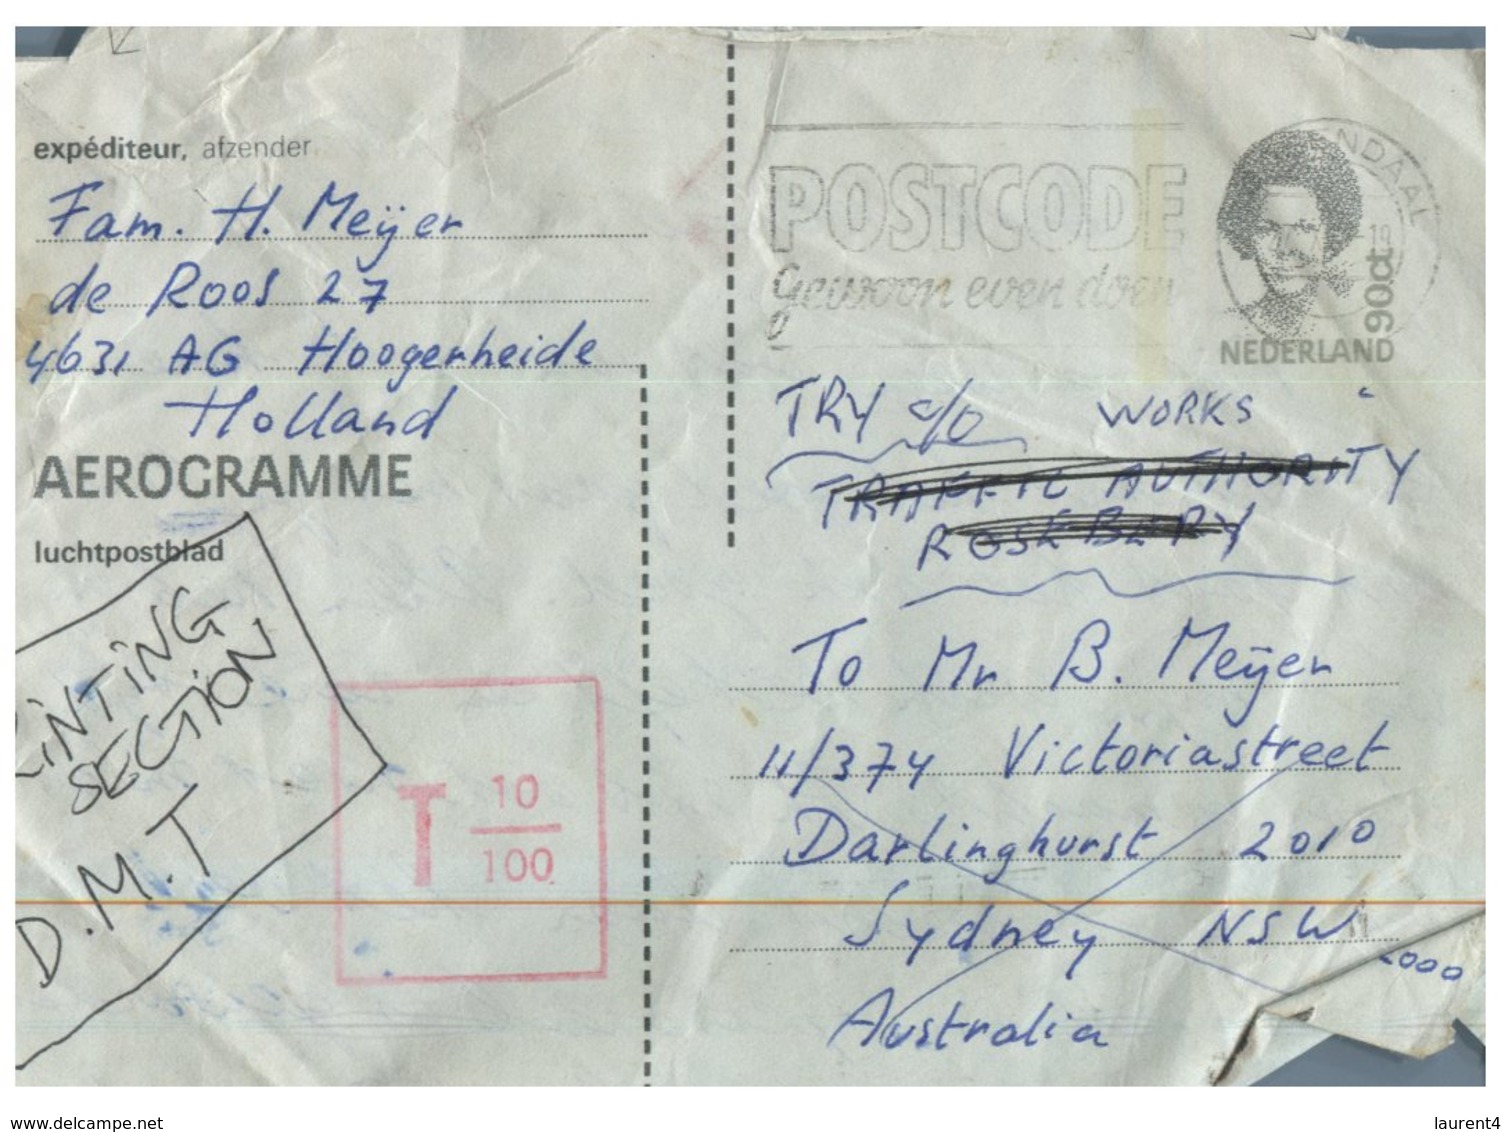 expéditeur, afzender
Fam. H. Meijer
de Roos 27
4631 AG Hoogerheide
Holland
AEROGRAMME
luchtpostblad
PRINTING
SECTION
D.M.T
T 10
100
POSTCODE
Gewoon even doen
NDAAL
19
90ct
NEDERLAND
TRY c/o WORKS
TRAFFIC AUTHORITY
ROSEBERY
To Mr B. Meijer
11/374 Victoriastreet
Darlinghurst 2010
Sydney NSW
2000
Australia
www.delcampe.net
laurent4